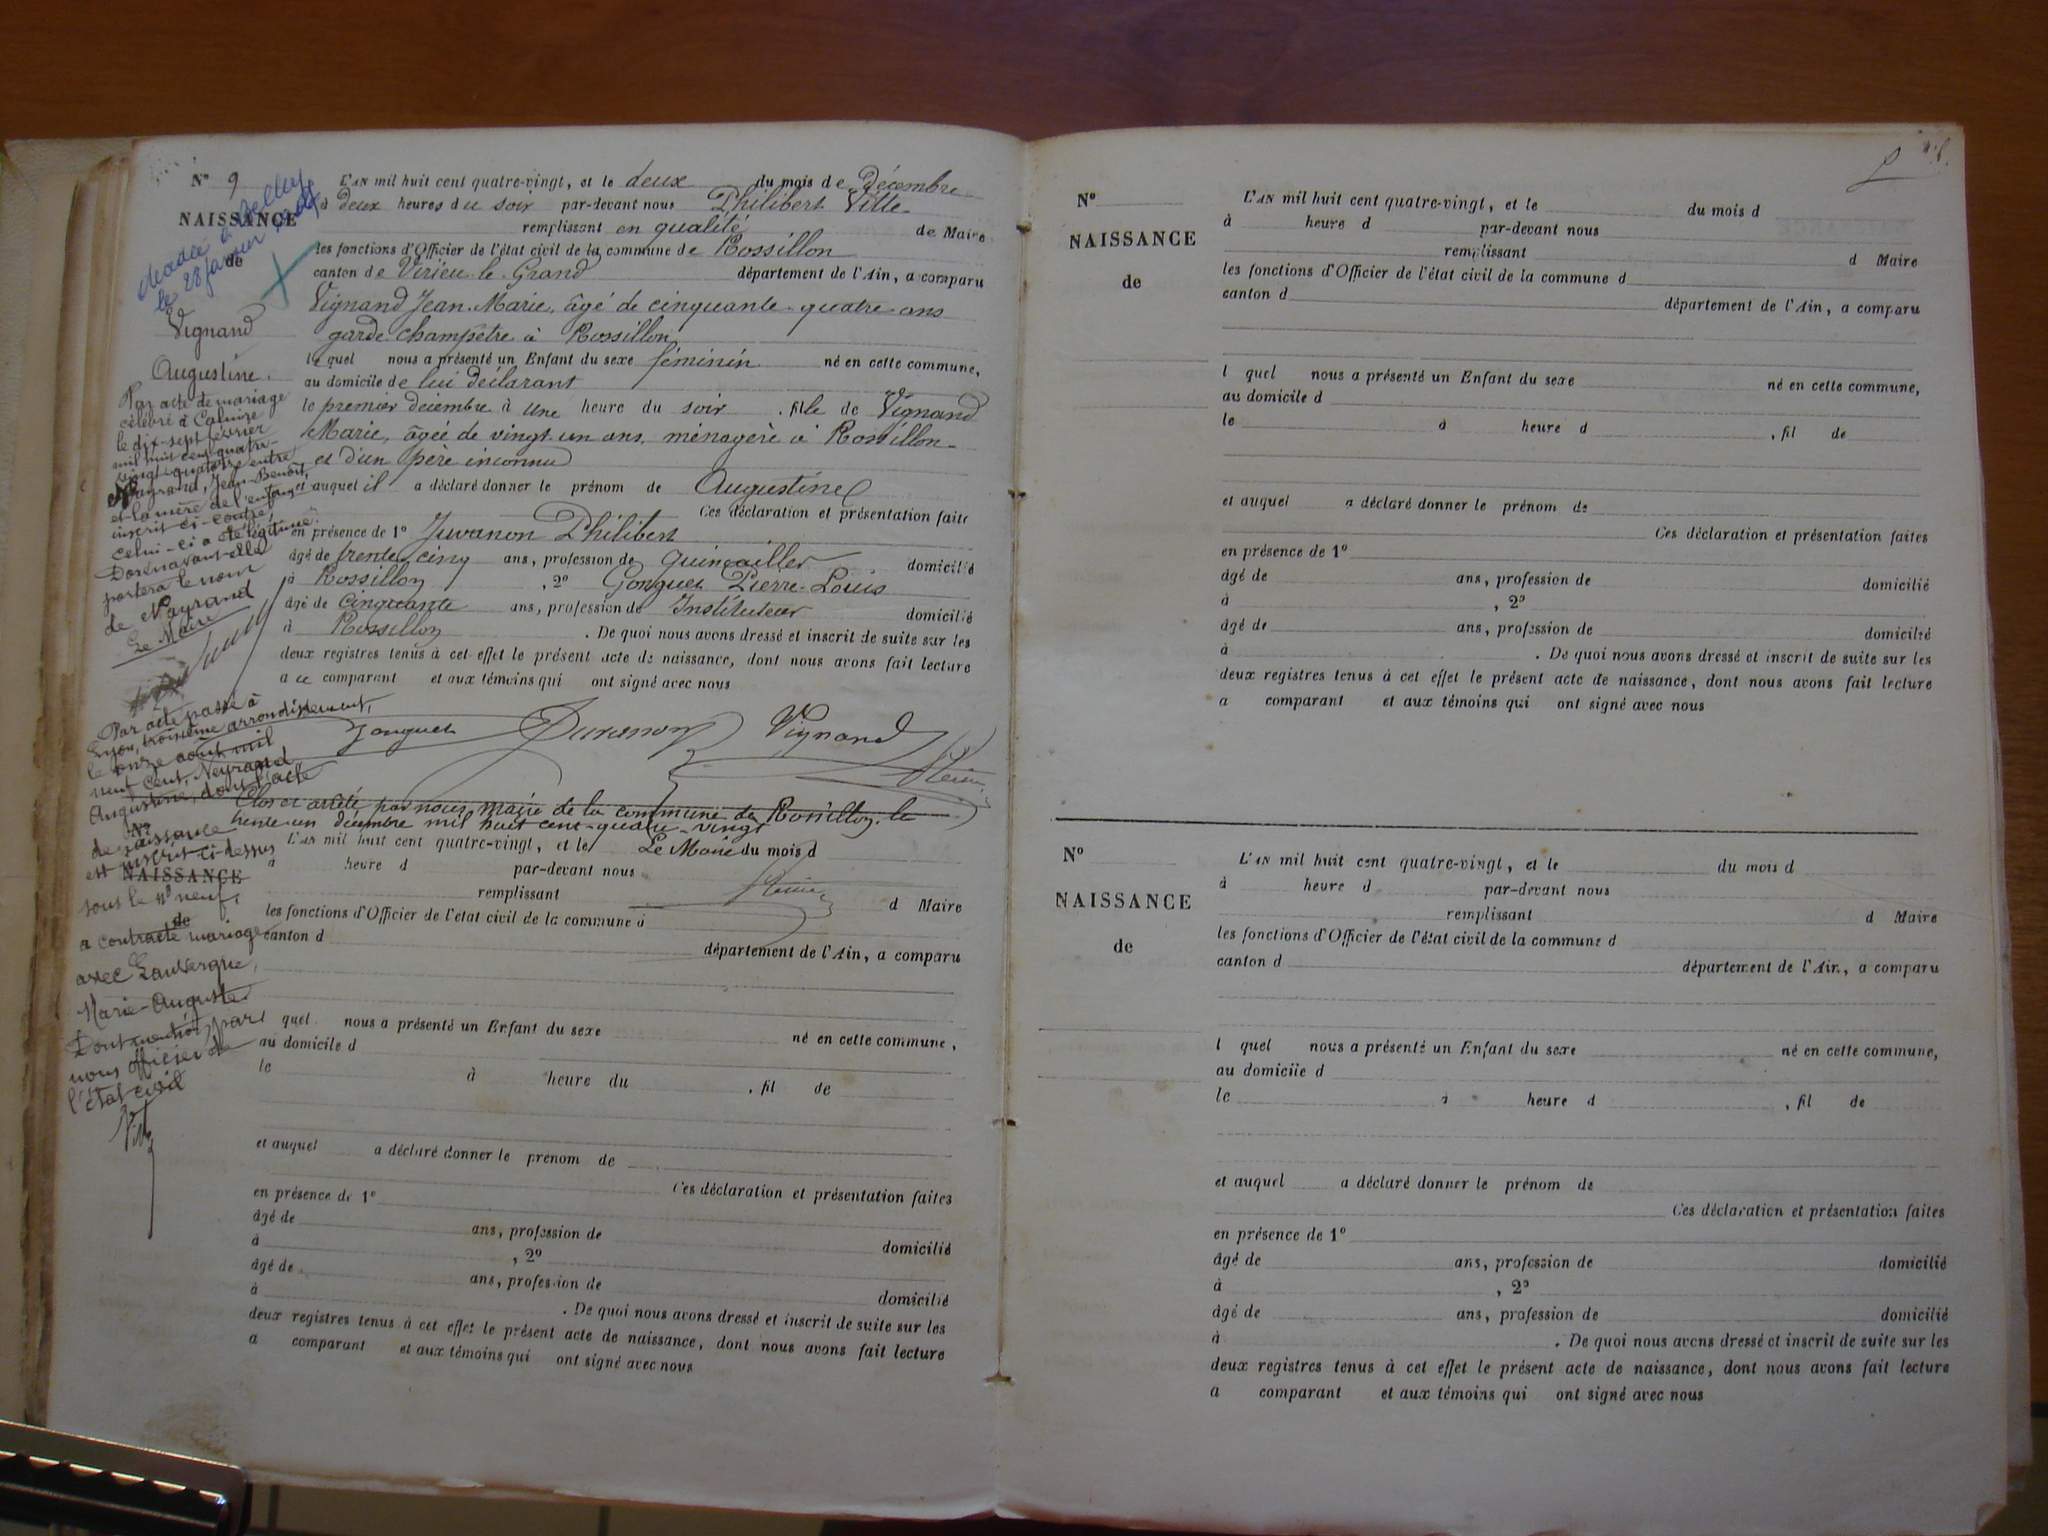 N° 9
NAISSANCE
de
décédée à Belley
le 28 janvier
Vignand
Augustine.
Par acte de mariage
célébré à Caluire
le dix-sept février
mil huit cent quatre-
vingt-quatorze entre
Neyrand, Jean-Benoit,
et la mère de l'enfant
inscrit ci-contre,
celui-ci a été légitimé.
Dorénavant elle
portera le nom
de Neyrand
Le Maire
Par acte passé à
Lyon, troisième arrondissement,
le onze août mil
neuf cent, Neyrand
Augustine, dont l'acte
de naissance
est inscrit ci-dessus
sous le n° neuf,
a contracté mariage
avec Lauvergne,
Marie-Auguste
Dont mention, par
nous officier de
l'état civil
Ville
L'AN mil huit cent quatre-vingt, et le deux du mois de Décembre
à deux heures du soir par-devant nous Philibert Ville
remplissant en qualité de Maire
les fonctions d'Officier de l'état civil de la commune de Rossillon
canton de Virieu-le-Grand département de l'Ain, a comparu
Vignand Jean-Marie, âgé de cinquante-quatre ans
garde-champêtre à Rossillon
lequel nous a présenté un Enfant du sexe féminin né en cette commune,
au domicile de lui déclarant
le premier décembre à une heure du soir , fille de Vignand
Marie, âgée de vingt-un ans, ménagère à Rossillon
et d'un père inconnu
et auquel il a déclaré donner le prénom de Augustine
Ces déclaration et présentation faites
en présence de 1° Juvanon Philibert
âgé de trente cinq ans, profession de quincailler domicilié
à Rossillon , 2° Gonguet Pierre-Louis
âgé de cinquante ans, profession de Instituteur domicilié
à Rossillon . De quoi nous avons dressé et inscrit de suite sur les
deux registres tenus à cet effet le présent acte de naissance, dont nous avons fait lecture
a ce comparant et aux témoins qui ont signé avec nous
Gonguet Juvanon Vignand
Clos et arrêté par nous, maire de la commune de Rossillon, le
trente-un décembre mil huit cent-quatre-vingt
Le Maire
N°
NAISSANCE
de
L'AN mil huit cent quatre-vingt, et le du mois d
à heure d par-devant nous
remplissant d Maire
les fonctions d'Officier de l'état civil de la commune d
canton d département de l'Ain, a comparu
l quel nous a présenté un Enfant du sexe né en cette commune,
au domicile d
le à heure du , fil de
et auquel a déclaré donner le prénom de
Ces déclaration et présentation faites
en présence de 1°
âgé de ans, profession de domicilié
à , 2°
âgé de ans, profession de domicilié
à . De quoi nous avons dressé et inscrit de suite sur les
deux registres tenus à cet effet le présent acte de naissance, dont nous avons fait lecture
a comparant et aux témoins qui ont signé avec nous
N°
NAISSANCE
de
L'AN mil huit cent quatre-vingt, et le du mois d
à heure d par-devant nous
remplissant d Maire
les fonctions d'Officier de l'état civil de la commune d
canton d département de l'Ain, a comparu
l quel nous a présenté un Enfant du sexe né en cette commune,
au domicile d
le à heure d , fil de
et auquel a déclaré donner le prénom de
Ces déclaration et présentation faites
en présence de 1°
âgé de ans, profession de domicilié
à , 2°
âgé de ans, profession de domicilié
à . De quoi nous avons dressé et inscrit de suite sur les
deux registres tenus à cet effet le présent acte de naissance, dont nous avons fait lecture
a comparant et aux témoins qui ont signé avec nous
N°
NAISSANCE
de
L'AN mil huit cent quatre-vingt, et le du mois d
à heure d par-devant nous
remplissant d Maire
les fonctions d'Officier de l'état civil de la commune d
canton d département de l'Ain, a comparu
l quel nous a présenté un Enfant du sexe né en cette commune,
au domicile d
le à heure d , fil de
et auquel a déclaré donner le prénom de
Ces déclaration et présentation faites
en présence de 1°
âgé de ans, profession de domicilié
à , 2°
âgé de ans, profession de domicilié
à . De quoi nous avons dressé et inscrit de suite sur les
deux registres tenus à cet effet le présent acte de naissance, dont nous avons fait lecture
a comparant et aux témoins qui ont signé avec nous